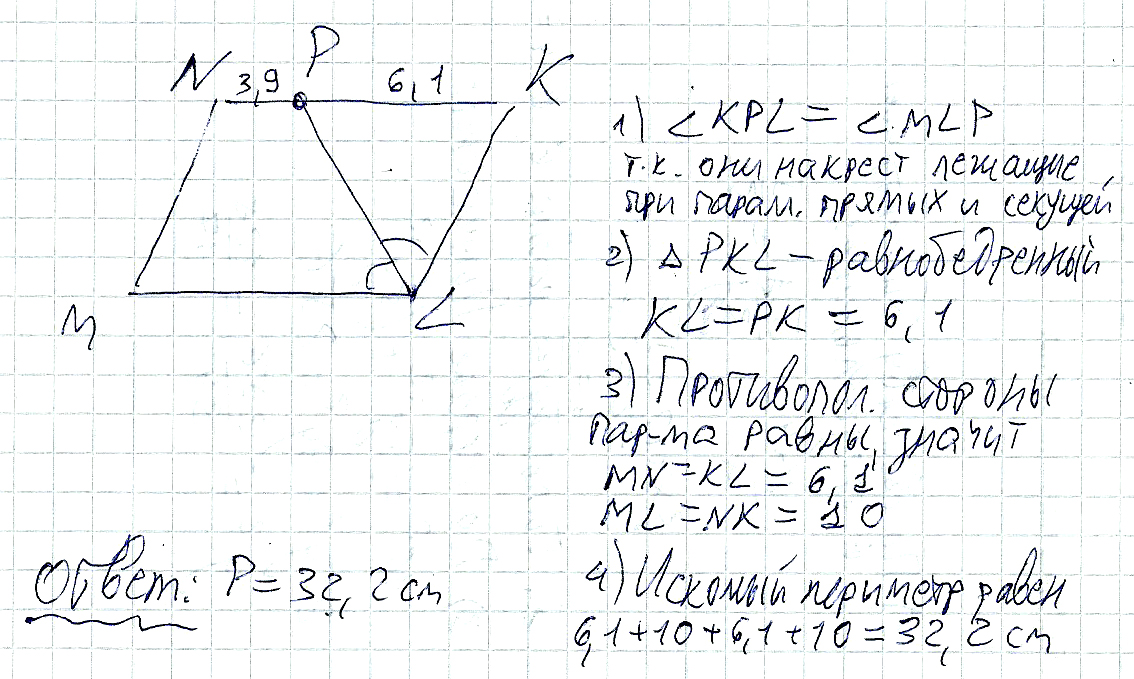 N 3,9 P 6,1 K
M L
1) ∠KPL = ∠MLP
т.к. они накрест лежащие
при парал. прямых и секущей
2) Δ PKL – равнобедренный
KL = PK = 6,1
3) Противопол. стороны
пар-ма равны, значит
MN = KL = 6,1
ML = NK = 10
4) Искомый периметр равен
6,1+10+6,1+10=32,2 см
Ответ: P = 32,2 см